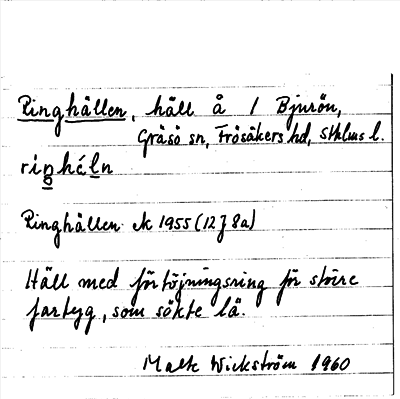 Ringhällen, häll å 1 Bjurön,
Gräsö sn, Frösåkers hd, Sthlms l.
riŋhéln
Ringhällen Ek 1955 (12J 8a)
Häll med förtöjningsring för större
fartyg, som sökte lä.
Malte Wickström 1960